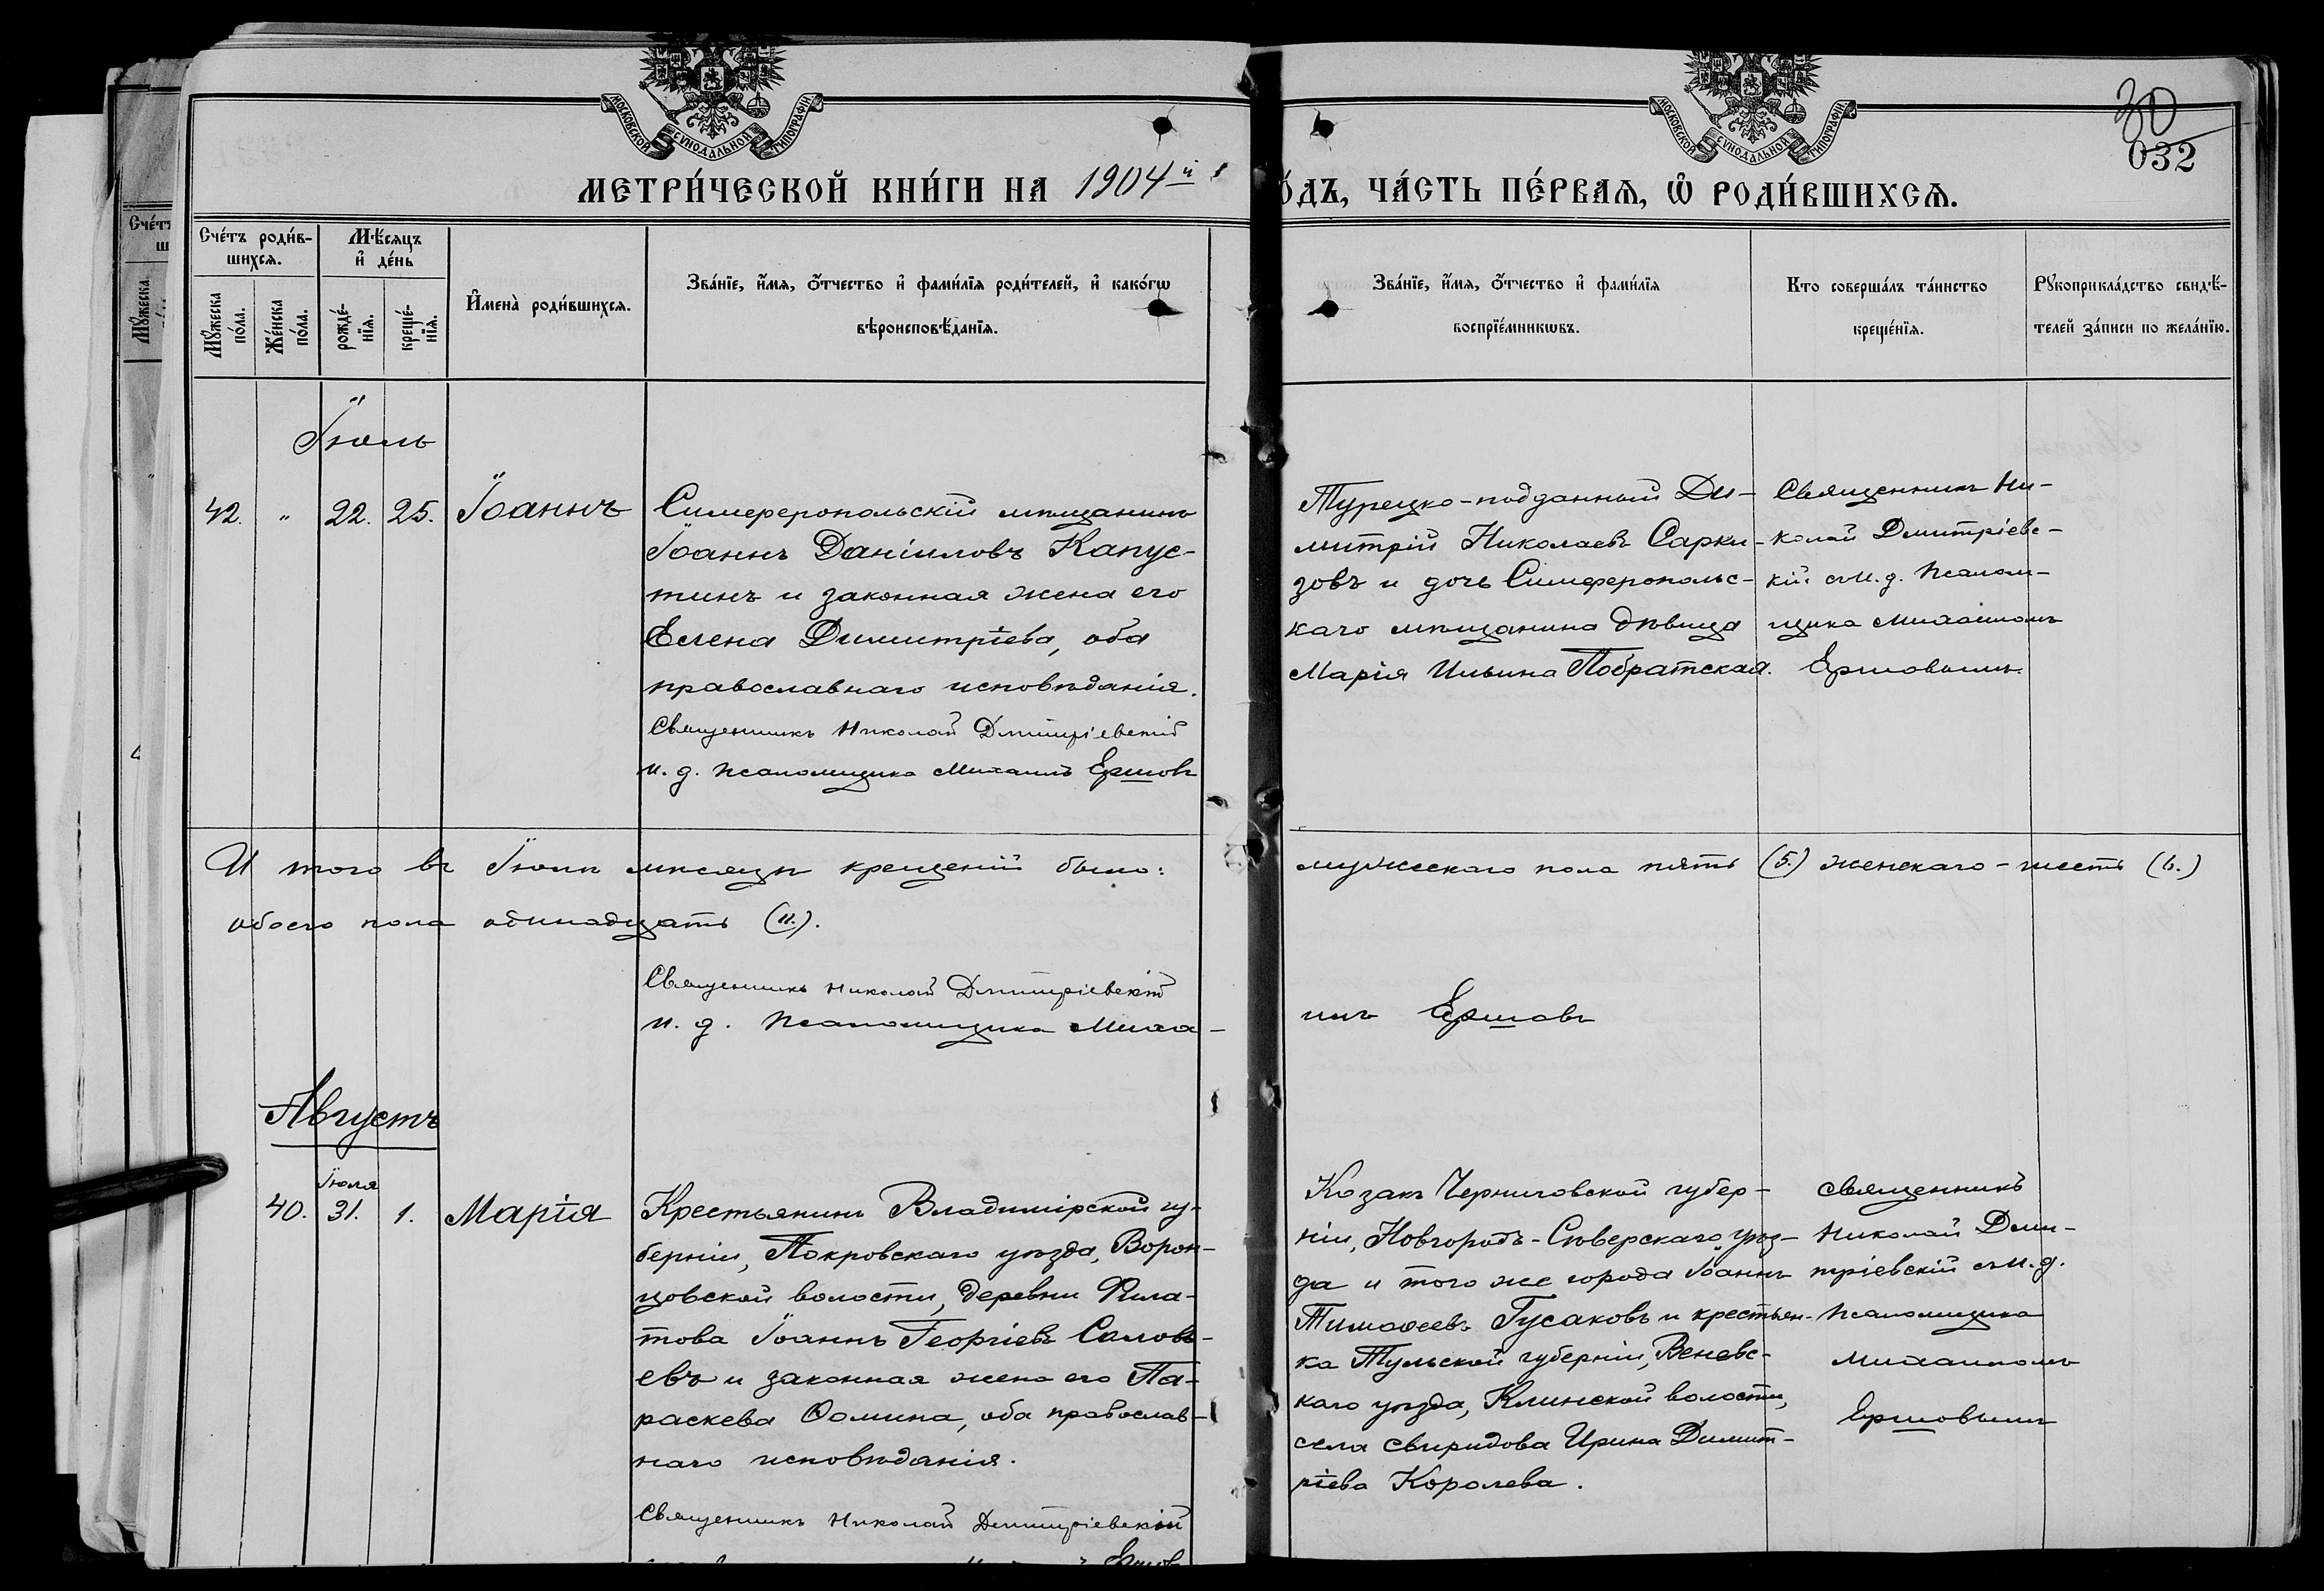 МОСКОВСКОЙ СУНОДАЛЬНОЙ ТИПОГРАФІИ
МОСКОВСКОЙ СУНОДАЛЬНОЙ ТИПОГРАФІИ
30
032
МЕТРИ́ЧЕСКОЙ КНИ́ГИ НА 1904й
О́ДЪ, ЧА́СТЬ ПЕ́РВАѦ, Ѽ РОДИ́ВШИХСѦ.
Сче́тъ роди́в-
шихсѧ.
Мꙋ́жеска по́ла.
Же́нска по́ла.
Мѣ́сѧцъ и҆ де́нь
рожде́-нїѧ.
креще́-нїѧ.
И҆мена̀ роди́вшихсѧ.
Зва́нїе, и҆́мѧ, ѻ҆́тчество и҆ фами́лїѧ роди́телей, и҆ како́гѡ
вѣроисповѣ́данїѧ.
Зва́нїе, и҆́мѧ, ѻ҆́тчество и҆ фами́лїѧ
воспрїе́мникѡвъ.
Кто соверша́лъ та́инство
креще́нїѧ.
Рꙋкоприкла́дство свидѣ́-
телей за́писи по жела́нїю.
Сче́тъ
ш
Мꙋ́жеска
Іюль
42. " 22. 25. Іоаннъ
Симферопольскій мѣщанинъ
Іоаннъ Даніиловъ Капус-
тинъ и законная жена его
Елена Димитріева, оба
православнаго исповѣданія.
Священникъ Николай Дмитріевскій
И. д. псаломщика Михаилъ Ершовъ
Турецко-подданный Ди-
митрій Николаевъ Сарки-
зовъ и дочь Симферопольс-
каго мѣщанина дѣвица
Марія Ильина Побратская.
Священникъ Ни-
колай Дмитріевс-
кій съ И. д. псалом-
щика Михаиломъ
Ершовымъ.
И того въ Іюлѣ мѣсяцѣ крещеній было: мужескаго пола пять (5.) женскаго - шесть (6.)
обоего пола одинадцать (11.).
Священникъ Николай Дмитріевскій
И. д. псаломщика Миха-
илъ Ершовъ
Августъ
Іюля
40. 31. 1. Марія
Крестьянинъ Владимірской гу-
берніи, Покровскаго уѣзда, Ворон-
цовской волости, деревни Фила-
това Іоаннъ Георгіевъ Соловь-
евъ и законная жена его Па-
раскева Ѳомина, оба православ-
наго исповѣданія.
Священникъ Николай Дмитріевскій
Ершовъ
Козакъ Черниговской губер-
ніи, Новгородъ-Сѣверскаго уѣз-
да и того же города Іоаннъ
Тимоѳеевъ Гусаковъ и крестьян-
ка Тульской губерніи, Веневс-
каго уѣзда, Клинской волости,
села Свиридова Ирина Димит-
ріева Королева.
Священникъ
Николай Дми-
тріевскій съ И. д.
псаломщика
Михаиломъ
Ершовымъ